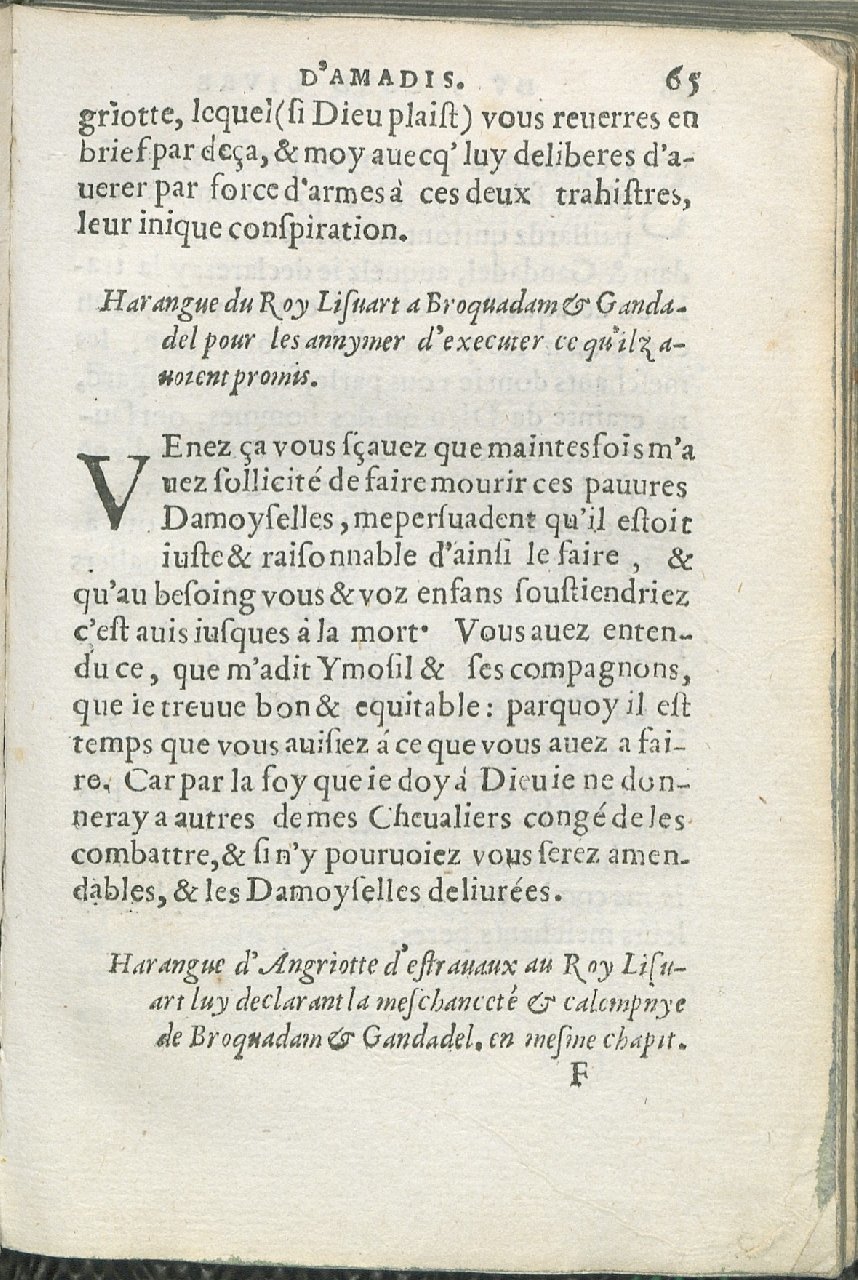 D'AMADIS. 65
griotte, lequel (ſi Dieu plaiſt) vous reuerres en
brief par deça, & moy auecq' luy deliberes d'a-
uerer par force d'armes à ces deux trahiſtres,
leur inique conſpiration.
Harangue du Roy Liſuart a Broquadam & Ganda-
del pour les annymer d'executer ce qu'ilz a-
uoient promis.
VEnez ça vous ſçauez que maintesfois m'a
uez ſollicité de faire mourir ces pauures
Damoyſelles, meperſuadent qu'il eſtoit
iuſte & raiſonnable d'ainſi le faire, &
qu'au beſoing vous & voz enfans ſouſtiendriez
c'eſt auis iuſques à la mort. Vous auez enten-
du ce, que m'adit Ymoſil & ſes compagnons,
que ie treuue bon & equitable: parquoy il eſt
temps que vous auiſiez á ce que vous auez a fai-
re. Car par la foy que ie doy á Dieu ie ne don-
neray a autres de mes Cheualiers congé de les
combattre, & ſi n'y pouruoiez vous ſerez amen-
dables, & les Damoyſelles deliurées.
Harangue d'Angriotte d'eſtrauaux au Roy Liſu-
art luy declarant la meſchanceté & calempnye
de Broquadam & Gandadel. en meſme chapit.
F